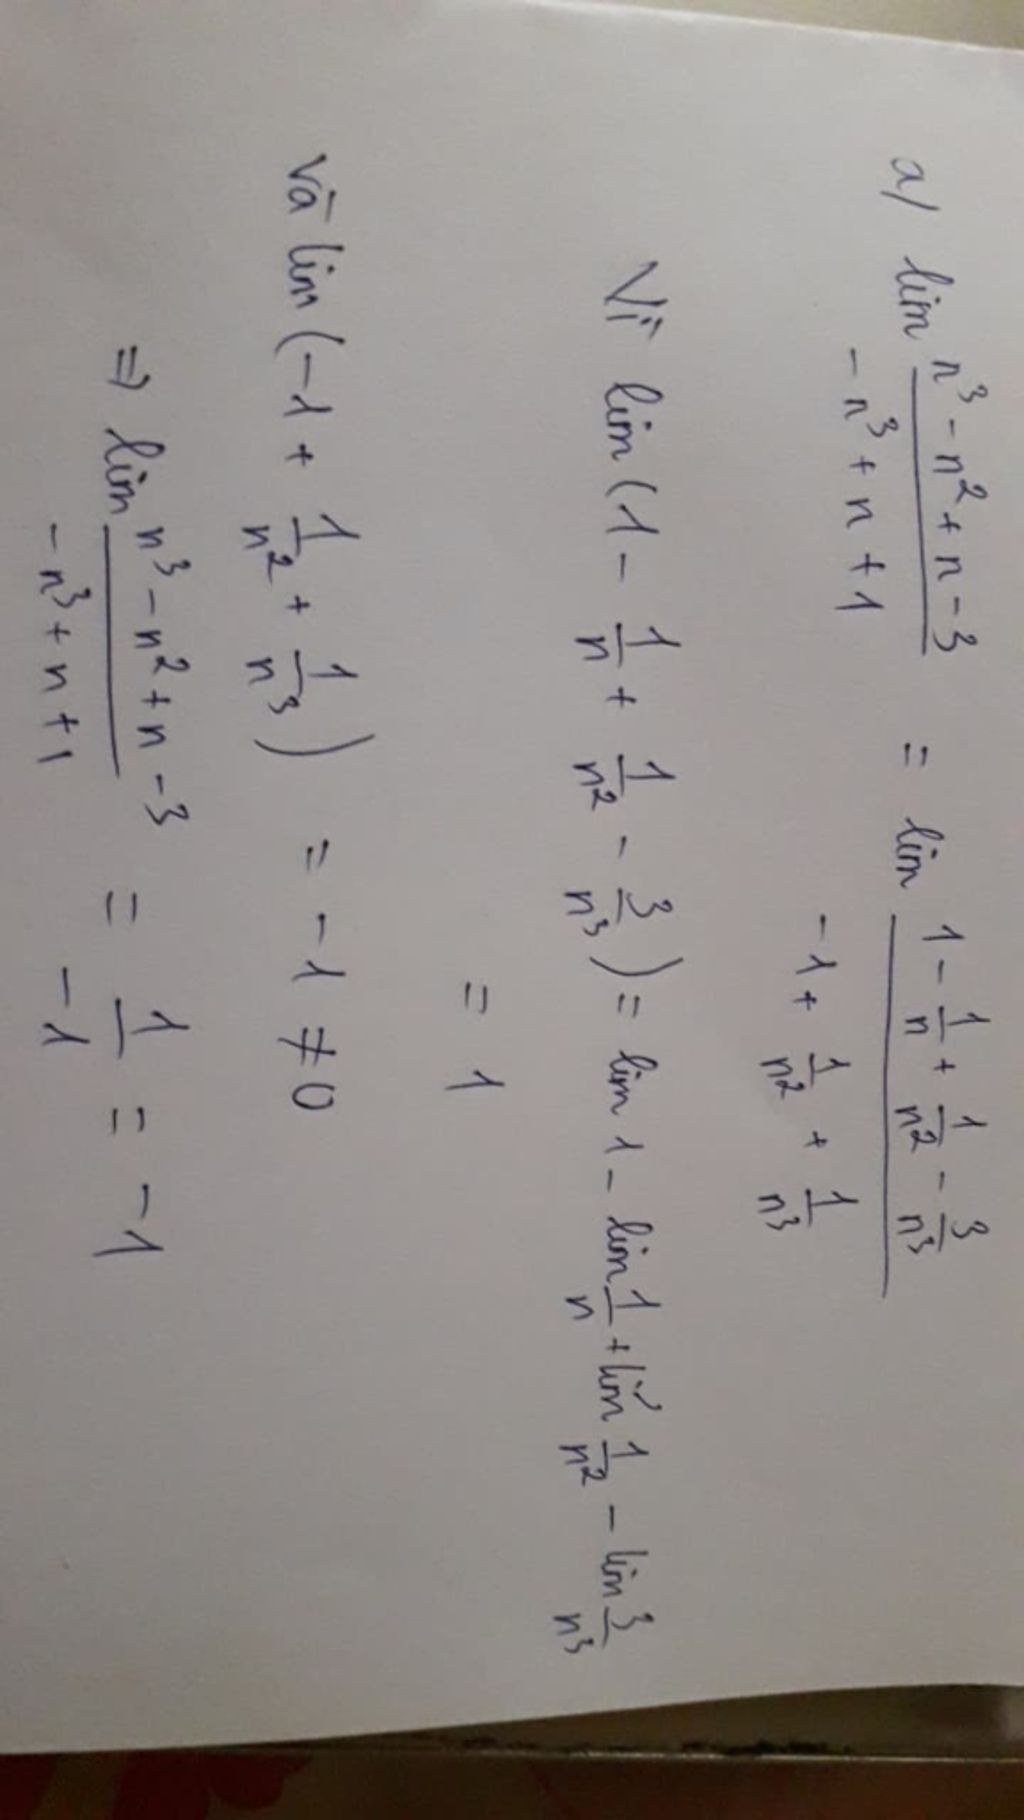 a/ lim (n³ - n² + n - 3)/(-n³ + n + 1) = lim (1 - 1/n + 1/n² - 3/n³)/(-1 + 1/n² + 1/n³)
Vì lim (1 - 1/n + 1/n² - 3/n³) = lim 1 - lim 1/n + lim 1/n² - lim 3/n³
= 1
Và lim (-1 + 1/n² + 1/n³) = -1 ≠ 0
⇒ lim (n³ - n² + n - 3)/(-n³ + n + 1) = 1/-1 = -1